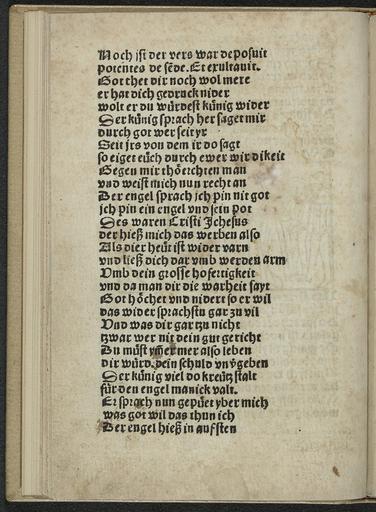 Noch ist der vers war deposuit
potentes de sēde. Et exultauit.
Got thet dir noch wol mere
er hat dich gedruck nider
wolt er du würdest künig wider
Der künig sprach her saget mir
durch got wer seit yr
Seit jrs von dem ir do sagt
so eiget eüch durch ewer wirdikeit
Gegen mir thöretchten man
vnd weist mich nun recht an
Der engel sprach ich pin nit got
ich pin ein engel vnd sein pot
Des waren Cristi Jchesus
der hieß mich das werben also
Als dier heüt ist wider varn
vnd ließ dich dar vmb werden arm
Vmb dein grosse hofertigkeit
vnd da man dir die warheit sayt
Got höchet vnd nidert so er wil
das wider sprachstu gar zu vil
Vnd was dir gar tzu nicht
tzwar wer nit dein gut gericht
Du müst ymer mer also leben
dir würd dein schuld vnügeben
Der künig viel do kreütz stalt
für den engel manick valt.
Er sprach nun gepüet yber mich
was got wil das thun ich
Der engel hieß in aufsten